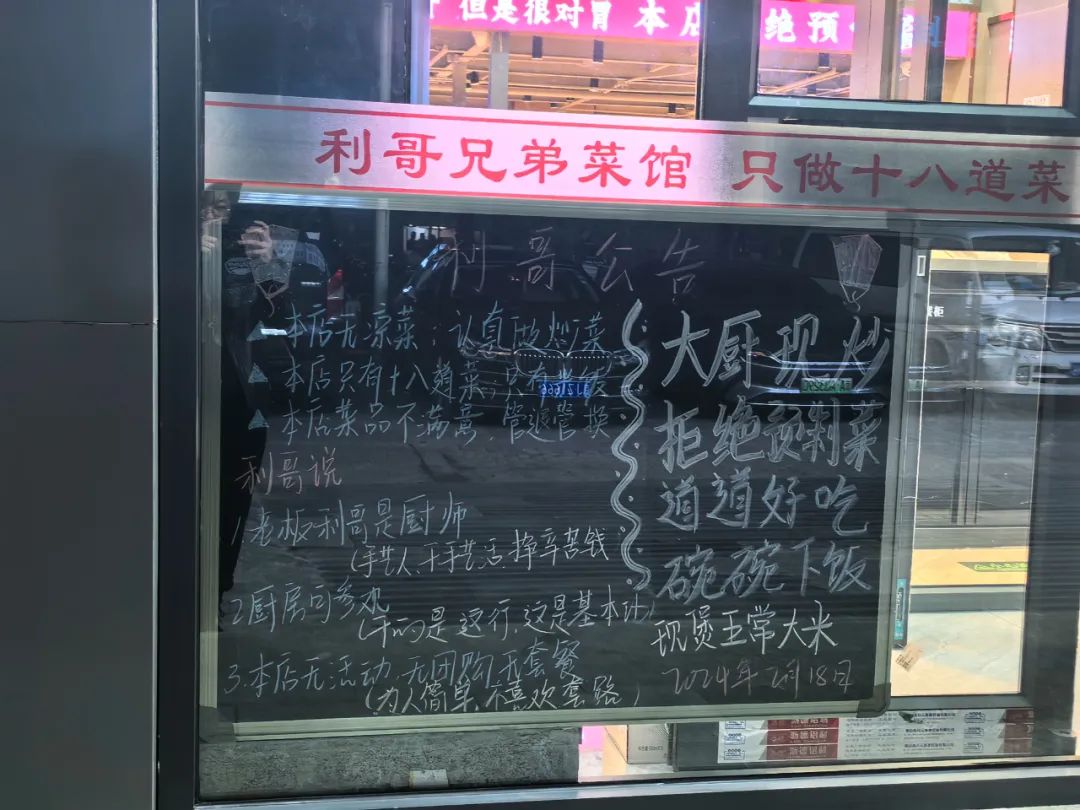 但是很对胃 本店
绝预
利哥兄弟菜馆 只做十八道菜
利哥公告
本店无凉菜；认真做炒菜
本店只有十八道菜；只有
本店菜品不满意，管退管换
利哥说
1老板利哥是厨师
（手艺人，干手艺活，挣辛苦钱
2厨房可参观
（干的是这行，这是基本功）
3.本店无活动，无团购，无套餐
（为人简单，不喜欢套路）
大厨现炒
拒绝预制菜
道道好吃
碗碗下饭
现煲五常大米
2024年2月18日